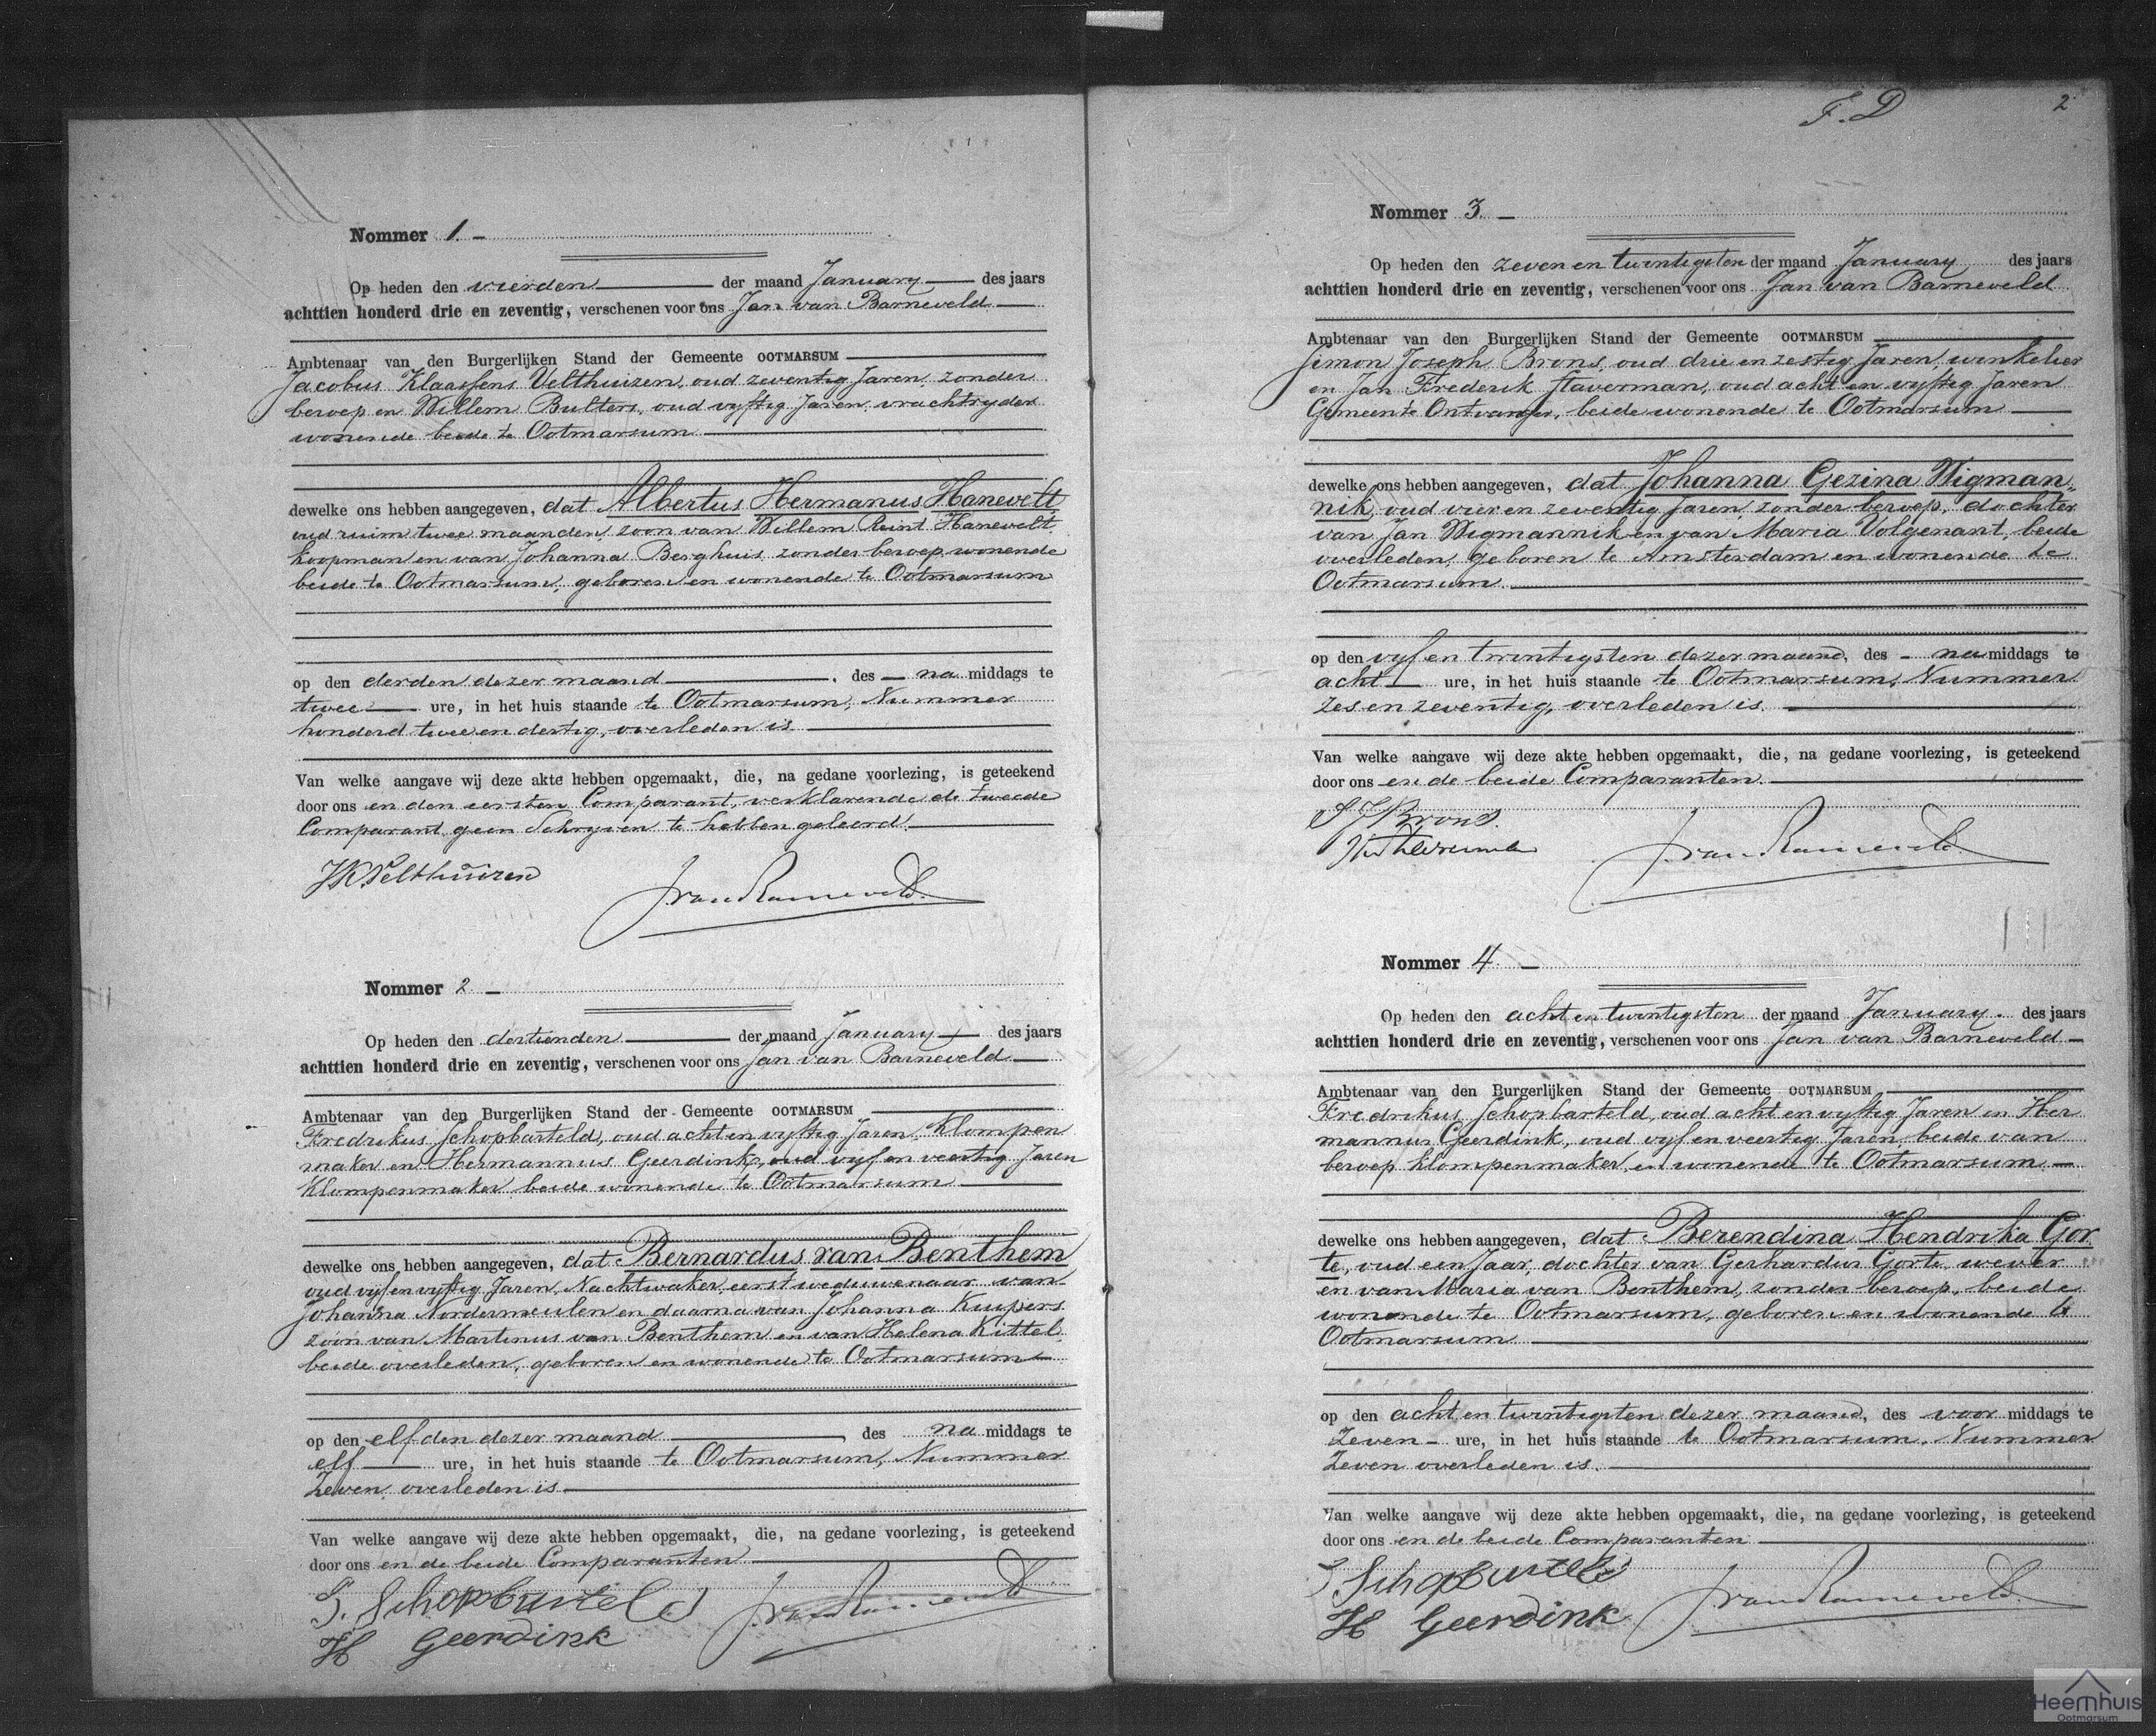 Nommer 1. –
Op heden den vierden der maand January des jaars
achttien honderd drie en zeventig, verschenen voor ons Jan van Barneveld
Ambtenaar van den Burgerlijken Stand der Gemeente OOTMARSUM
Jacobus Klaassens Velthuizen, oud zeventig Jaren, zonder
beroep en Willem Bulters, oud vyftig Jaren, vrachtryder
wonende beide te Ootmarsum
dewelke ons hebben aangegeven, dat Albertus Hermanus Hanevelt,
oud ruim twee maanden, zoon van Willem Reint Hanevelt,
Koopman en van Johanna Berghuis, zonder beroep, wonende
beide te Ootmarsum, geboren en wonende te Ootmarsum
op den derden dezer maand, des – na middags te
twee ure, in het huis staande te Ootmarsum, Nummer
honderd twee en dertig, overleden is.
Van welke aangave wij deze akte hebben opgemaakt, die, na gedane voorlezing, is geteekend
door ons en den eersten Comparant, verklarende de tweede
Comparant geen Schryven te hebben geleerd.
JKVelthuizen
J van Barneveld.
Nommer 2 –
Op heden den dertienden der maand January des jaars
achttien honderd drie en zeventig, verschenen voor ons Jan van Barneveld
Ambtenaar van den Burgerlijken Stand der Gemeente OOTMARSUM
Fredrikus Schopbarteld, oud acht en vyftig Jaren, Klompen
maker en Hermannus Geerdink, oud vyf en veertig Jaren
Klompenmaker beide wonende te Ootmarsum
dewelke ons hebben aangegeven, dat Bernardus van Benthem
oud vyf en vyftig Jaren, Nachtwaker, eerst weduwenaar van
Johanna Nordermeulen en daarna van Johanna Kuipers
zoon van Martinus van Benthem en van Helena Kittel
beide overleden, geboren en wonende te Ootmarsum
op den elfden dezer maand, des na middags te
elf ure, in het huis staande te Ootmarsum, Nummer
Zeven, overleden is.
Van welke aangave wij deze akte hebben opgemaakt, die, na gedane voorlezing, is geteekend
door ons en de beide Comparanten
Schopbarteld
J van Barneveld
H Geerdink
F. D
2
Nommer 3. –
Op heden den zeven en twintigsten der maand January des jaars
achttien honderd drie en zeventig, verschenen voor ons Jan van Barneveld
Ambtenaar van den Burgerlijken Stand der Gemeente OOTMARSUM
Simon Joseph Brons, oud drie en zestig Jaren, winkelier
en Jan Frederik Staverman, oud acht en vyftig Jaren
Gemeente Ontvanger, beide wonende te Ootmarsum
dewelke ons hebben aangegeven, dat Johanna Gezina Wigman„
nik, oud vier en zeventig Jaren, zonder beroep, dochter
van Jan Wigmannik en van Maria Volgenant, beide
overleden, geboren te Amsterdam en wonende te
Ootmarsum.
op den vyf en twintigsten dezer maand, des – na middags te
acht ure, in het huis staande te Ootmarsum, Nummer
zes en zeventig, overleden is.
Van welke aangave wij deze akte hebben opgemaakt, die, na gedane voorlezing, is geteekend
door ons en de beide Comparanten.
S J Brons.
J van Barneveld.
Nommer 4. –
Op heden den acht en twintigsten der maand January. des jaars
achttien honderd drie en zeventig, verschenen voor ons Jan van Barneveld
Ambtenaar van den Burgerlijken Stand der Gemeente OOTMARSUM
Fredrikus Schopbarteld, oud acht en vyftig Jaren en Her
mannus Geerdink, oud vyf en veertig Jaren, beide van
beroep klompenmaker, en wonende te Ootmarsum
dewelke ons hebben aangegeven, dat Berendina Hendrika Gor
te, oud een Jaar, dochter van Gerhardus Gorte, wever
en van Maria van Benthem, zonder beroep, beide
wonende te Ootmarsum, geboren en wonende te
Ootmarsum
op den acht en twintigsten dezer maand, des voor middags te
Zeven – ure, in het huis staande te Ootmarsum, Nummer
Zeven overleden is.
Van welke aangave wij deze akte hebben opgemaakt, die, na gedane voorlezing, is geteekend
door ons en de beide Comparanten
Schopbarteld
H Geerdink
J van Barneveld
Heemhuis
Ootmarsum